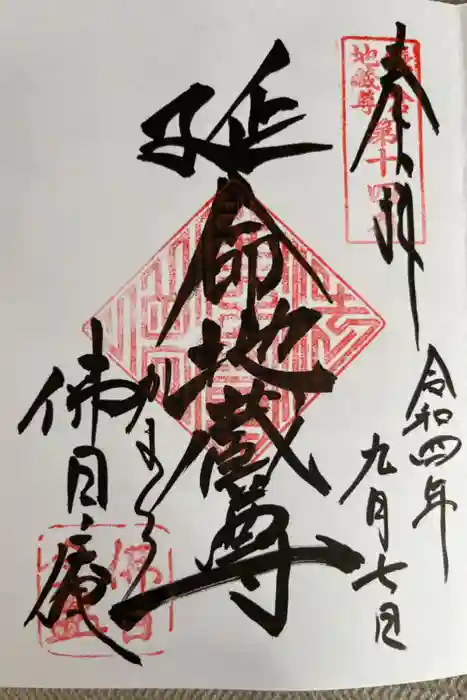 奉拝
鎌倉第十四番
地蔵尊
令和四年
九月七日
延命地蔵尊
かまくら
佛日庵